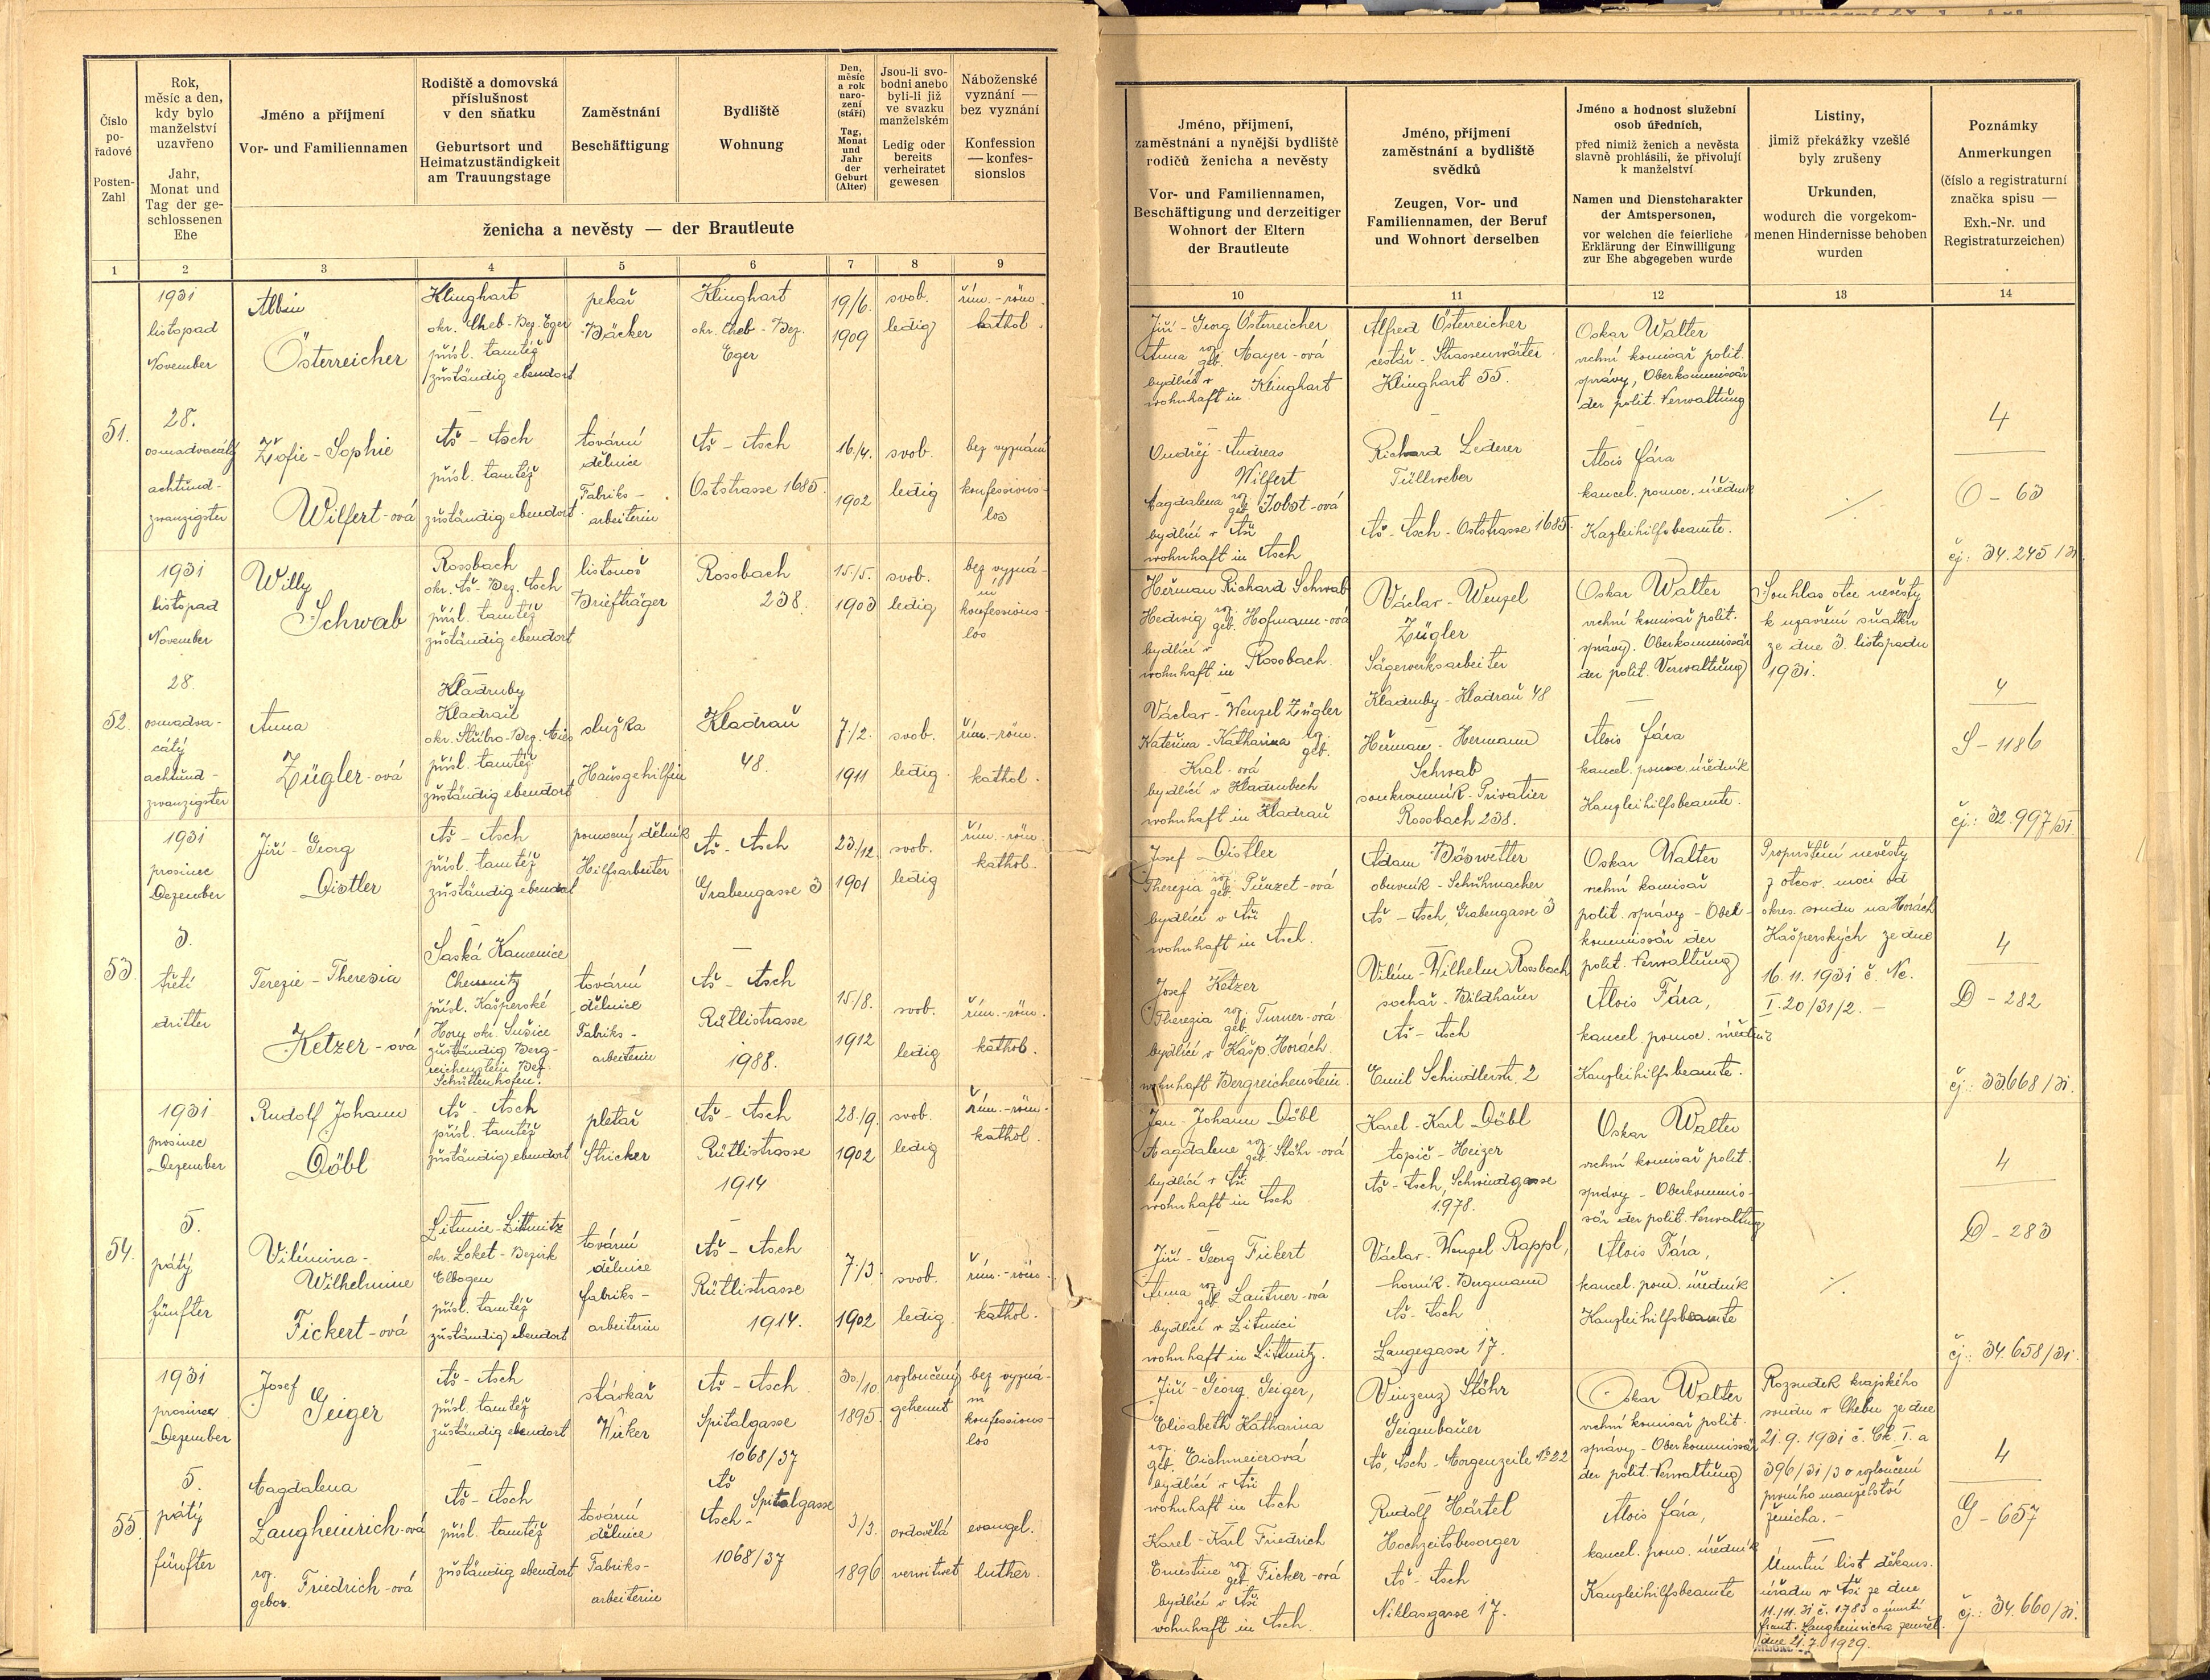 Číslo
po-
řadové
Posten-
Zahl
Rok,
měsíc a den,
kdy bylo
manželství
uzavřeno
Jahr,
Monat und
Tag der ge-
schlossenen
Ehe
Jméno a příjmení
Vor- und Familiennamen
Rodiště a domovská
příslušnost
v den sňatku
Geburtsort und
Heimatzuständigkeit
am Trauungstage
Zaměstnání
Beschäftigung
Bydliště
Wohnung
Den,
měsíc
a rok
naro-
zení
(stáří)
Tag,
Monat
und
Jahr
der
Geburt
(Alter)
Jsou-li svo-
bodni anebo
byli-li již
ve svazku
manželském
Ledig oder
bereits
verheiratet
gewesen
Náboženské
vyznání —
bez vyznání
Konfession
— konfes-
sionslos
ženicha a nevěsty — der Brautleute
1 2 3 4 5 6 7 8 9
51.
1931
listopad
November
28.
osmadvacátý
achtund-
zwanzigster
Albin
Österreicher
Klinghart
okr. Cheb - Bez. Eger
přísl. tamtéž
zuständig ebendort
pekař
Bäcker
Klinghart
okr. Cheb - Bez.
Eger
19/6.
1909
svob.
ledig
řím. - röm.
kathol.
Žofie - Sophie
Wilfert - ová
Aš - Asch
přísl. tamtéž
zuständig ebendort
tovární
dělnice
Fabriks-
arbeiterin
Aš - Asch
Oststrasse 1685.
16/4.
1902
svob.
ledig
bez vyznání
konfessions-
los
52.
1931
listopad
November
28.
osmadva-
cátý
achtund-
zwanzigster
Willy
Schwab
Rossbach
okr. Aš - Bez. Asch
přísl. tamtéž
zuständig ebendort
listonoš
Briefträger
Rossbach
238.
15./5.
1903
svob.
ledig
bez vyzná-
ní
konfessions-
los
Anna
Zügler - ová
Kladruby
Kladrau
okr. Stříbro - Bez. Mies
přísl. tamtéž
zuständig ebendort
služka
Hausgehilfin
Kladrau
48.
7./2.
1911
svob.
ledig
řím. - röm.
kathol.
53.
1931
prosinec
Dezember
3.
třetí
dritter
Jiří - Georg
Distler
Aš - Asch
přísl. tamtéž
zuständig ebendort
pomocný dělník
Hilfsarbeiter
Aš - Asch
Grabengasse 3
23/12.
1901
svob.
ledig
řím. - röm.
kathol.
Terezie - Theresia
Ketzer - ová
Saská Kamenice
Chemnitz
přísl. Kašperské
Hory okr. Sušice
zuständig Berg-
reichenstein Bez.
Schüttenhofen.
tovární
dělnice
Fabriks-
arbeiterin
Aš - Asch
Rütlistrasse
1988.
15/8.
1912
svob.
ledig
řím. - röm.
kathol.
54.
1931
prosinec
Dezember
5.
pátý
fünfter
Rudolf Johann
Döbl
Aš - Asch
přísl. tamtéž
zuständig ebendort
pletař
Stricker
Aš - Asch
Rütlistrasse
1914
28./9.
1902
svob.
ledig
řím. - röm.
kathol.
Vilímina -
Wilhelmine
Fickert - ová
Litmice - Littmitz
okr. Loket - Bezirk
Elbogen
přísl. tamtéž
zuständig ebendort
tovární
dělnice
fabriks-
arbeiterin
Aš - Asch
Rütlistrasse
1914.
7./3.
1902
svob.
ledig.
řím. - röm.
kathol.
55.
1931
prosinec
Dezember
5.
pátý
fünfter
Josef
Geiger
Aš - Asch
přísl. tamtéž
zuständig ebendort
stávkař
Wirker
Aš - Asch.
Spitalgasse
1068/37
30./10.
1895.
rozloučený
getrennt
bez vyzná-
ní
konfessions-
los
Magdalena
Langheinrich - ová
roz.
gebor. Friedrich - ová
Aš - Asch
přísl. tamtéž
zuständig ebendort
tovární
dělnice
Fabriks-
arbeiterin
Aš
Asch - Spitalgasse
1068/37
3/3.
1896
ovdovělá
verwitwet
evangel.
luther.
Jméno, příjmení,
zaměstnání a nynější bydliště
rodičů ženicha a nevěsty
Vor- und Familiennamen,
Beschäftigung und derzeitiger
Wohnort der Eltern
der Brautleute
Jméno, příjmení
zaměstnání a bydliště
svědků
Zeugen, Vor- und
Familiennamen, der Beruf
und Wohnort derselben
Jméno a hodnost služební
osob úředních,
před nimiž ženich a nevěsta
slavně prohlásili, že přivolují
k manželství
Namen und Dienstcharakter
der Amtspersonen,
vor welchen die feierliche
Erklärung der Einwilligung
zur Ehe abgegeben wurde
Listiny,
jimiž překážky vzešlé
byly zrušeny
Urkunden,
wodurch die vorgekom-
menen Hindernisse behoben
wurden
Poznámky
Anmerkungen
(číslo a registraturní
značka spisu —
Exh.-Nr. und
Registraturzeichen)
10 11 12 13 14
Jiří - Georg Österreicher
Anna roz. geb. Mayer - ová
bydlící v
wohnhaft in Klinghart
Ondřej - Andreas
Wilfert
Magdalena roz. geb. Jobst - ová
bydlící v Aši
wohnhaft in Asch
Alfred Österreicher
cestář - Strassenwärter
Klinghart 55.
Richard Lederer
Tüllweber
Aš - Asch - Oststrasse 1685.
Oskar Walter
vrchní komisař polit.
správy, Oberkommissär
der polit. Verwaltung
Alois Fára
kancel. pomoc. úředník
Kazleihilfsbeamte.
4
O - 63
čj: 34.245/31
Heřman Richard Schwab
Hedwig roz. geb. Hofmann - ová
bydlící v
wohnhaft in Rossbach.
Václav - Wenzel Zügler
Kateřina - Katharina roz. geb.
Kral - ová
bydlící v Kladrubech
wohnhaft in Kladrau
Václav - Wenzel
Zügler
Sägewerksarbeiter
Kladruby - Kladrau 48
Heřman - Hermann
Schwab
soukromník - Privatier
Rossbach 238.
Oskar Walter
vrchní komisař polit.
správy. Oberkommissär
der polit. Verwaltung
Alois Fára
kancel. pomoc. úředník
Kanzleihilfsbeamte.
Souhlas otce nevěsty
k uzavření sňatku
ze dne 3. listopadu
1931.
4
S - 1186
čj.: 32.997/31.
Josef Distler
Therezia roz. geb. Punzet - ová
bydlící v Aši
wohnhaft in Asch.
Josef Ketzer
Therezia roz. geb. Turner - ová
bydlící v Kašp. Horách.
wohnhaft Bergreichenstein.
Adam Böswetter
obuvník - Schuhmacher
Aš - Asch, Grabengasse 3
Vilém - Wilhelm Rossbach
sochař - Bildhauer
Aš - Asch
Emil Schindlerstr. 2
Oskar Walter
vrchní komisař
polit. správy - Ober-
kommissär der
polit. Verwaltung
Alois Fára,
kancel. pomoc. úředník
Kanzleihilfsbeamte.
Propuštění nevěsty
z otcov. moci od
okres. soudu na Horách
Kašperských ze dne
16. 11. 1931 č. Nc.
I. 20/31/2. -
4
D - 282
čj: 33668/31.
Jan - Johann Döbl
Magdalene roz. geb. Stöhr - ová
bydlící v Aši
wohnhaft in Asch
Jiří - Georg Fickert
Anna roz. geb. Lautner - ová
bydlící v Litmici
wohnhaft in Littmitz.
Karel - Karl Döbl
topič - Heizer
Aš - Asch, Schwindgasse
1978.
Václav - Wenzel Rappl,
horník - Bergmann
Aš - Asch
Langegasse 17.
Oskar Walter
vrchní komisař polit.
správy - Oberkommis-
sär der polit. Verwaltung
Alois Fára,
kancel. pom. úředník
Kanzleihilfsbeamte
4
D - 283
čj.: 34.658/31.
Jiří - Georg Geiger,
Elisabeth Katharina
roz. geb. Eichmeierová
bydlící v Aši
wohnhaft in Asch
Karel - Karl Friedrich
Ernestine roz. geb. Ficker - ová
bydlící v Aši
wohnhaft in Asch.
Vinzenz Stöhr
Geigenbauer
Aš, Asch - Morgenzeile 1522
Rudolf Härtel
Hochzeitsbesorger
Aš - Asch
Niklasgasse 17.
Oskar Walter
vrchní komisař polit.
správy - Oberkommissär
der polit. Verwaltung
Alois Fára,
kancel. pom. úředník
Kanzleihilfsbeamte
Rozsudek krajského
soudu v Chebu ze dne
21. 9. 1931 č. Ck. I. a
396/31/3 o rozloučení
prvního manželství
ženicha. -
Úmrtní list děkans.
úřadu v Aši ze dne
11./11. 31 č. 1783 o úmrtí
Langheinricha zemřel.
dne 21. 7. 1929.
4
G - 657
čj.: 34.660/31.